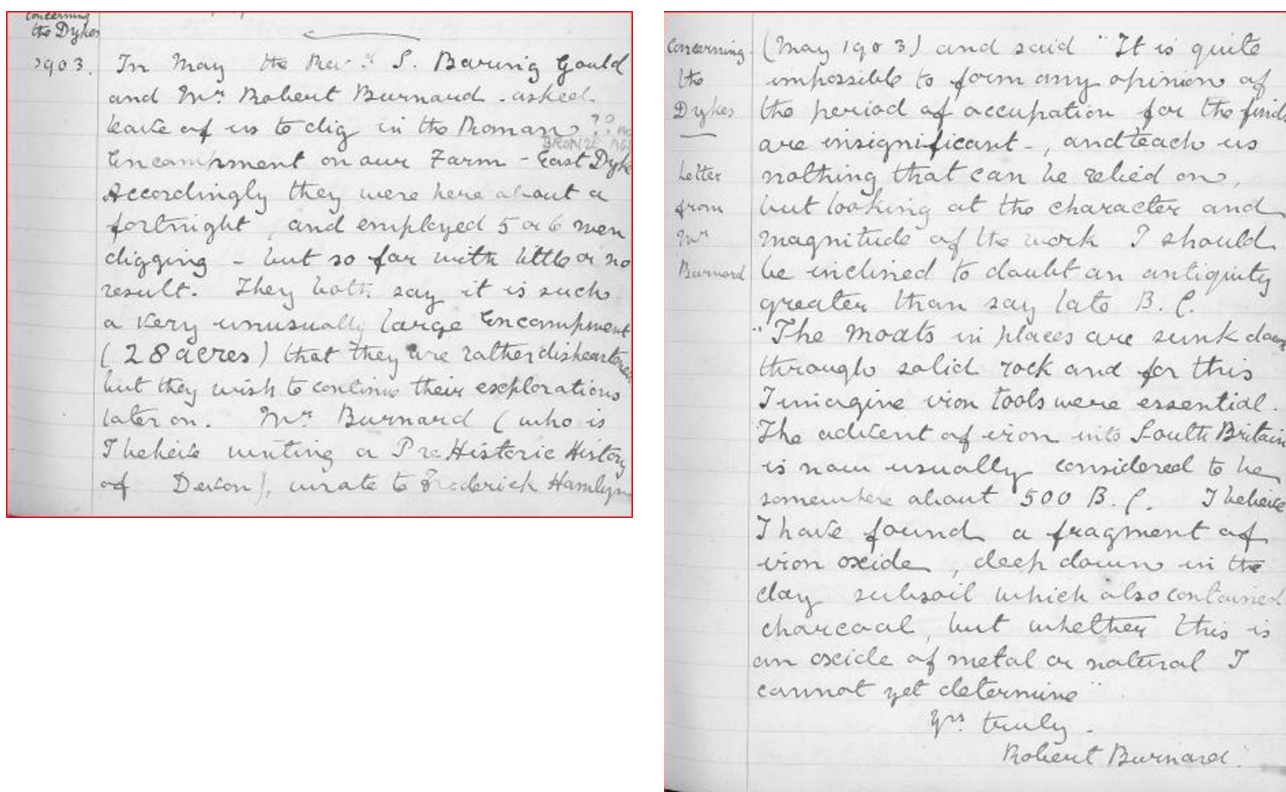 Concerning
the Dykes
1903. In May the Rev.d S. Baring Gould
and Mr. Robert Burnard - asked
leave of us to dig in the Roman ??
BRONZE AGE
Encampment on our Farm - East Dyke
Accordingly they were here about a
fortnight, and employed 5 or 6 men
digging - but so far with little or no
result. They both say it is such
a very unusually large Encampment
(28 acres) that they are rather disheartened
but they wish to continue their explorations
later on. Mr. Burnard (who is
I believe writing a Pre Historic History
of Devon), wrote to Frederick Hamlyn
Concerning (May 1903) and said "It is quite
the impossible to form any opinion of
Dykes the period of occupation for the finds
are insignificant -, and teach us
Letter nothing that can be relied on,
from but looking at the character and
Mr magnitude of the work I should
Burnard be inclined to doubt an antiquity
greater than say late B.C.
"The moats in places are sunk down
through solid rock and for this
I imagine iron tools were essential.
The advent of iron into South Britain
is now usually considered to be
somewhere about 500 B.C. I believe
I have found a fragment of
iron oxide, deep down in the
clay subsoil which also contained
charcoal, but whether this is
an oxide of metal or natural I
cannot yet determine"
Yrs truly.
Robert Burnard."